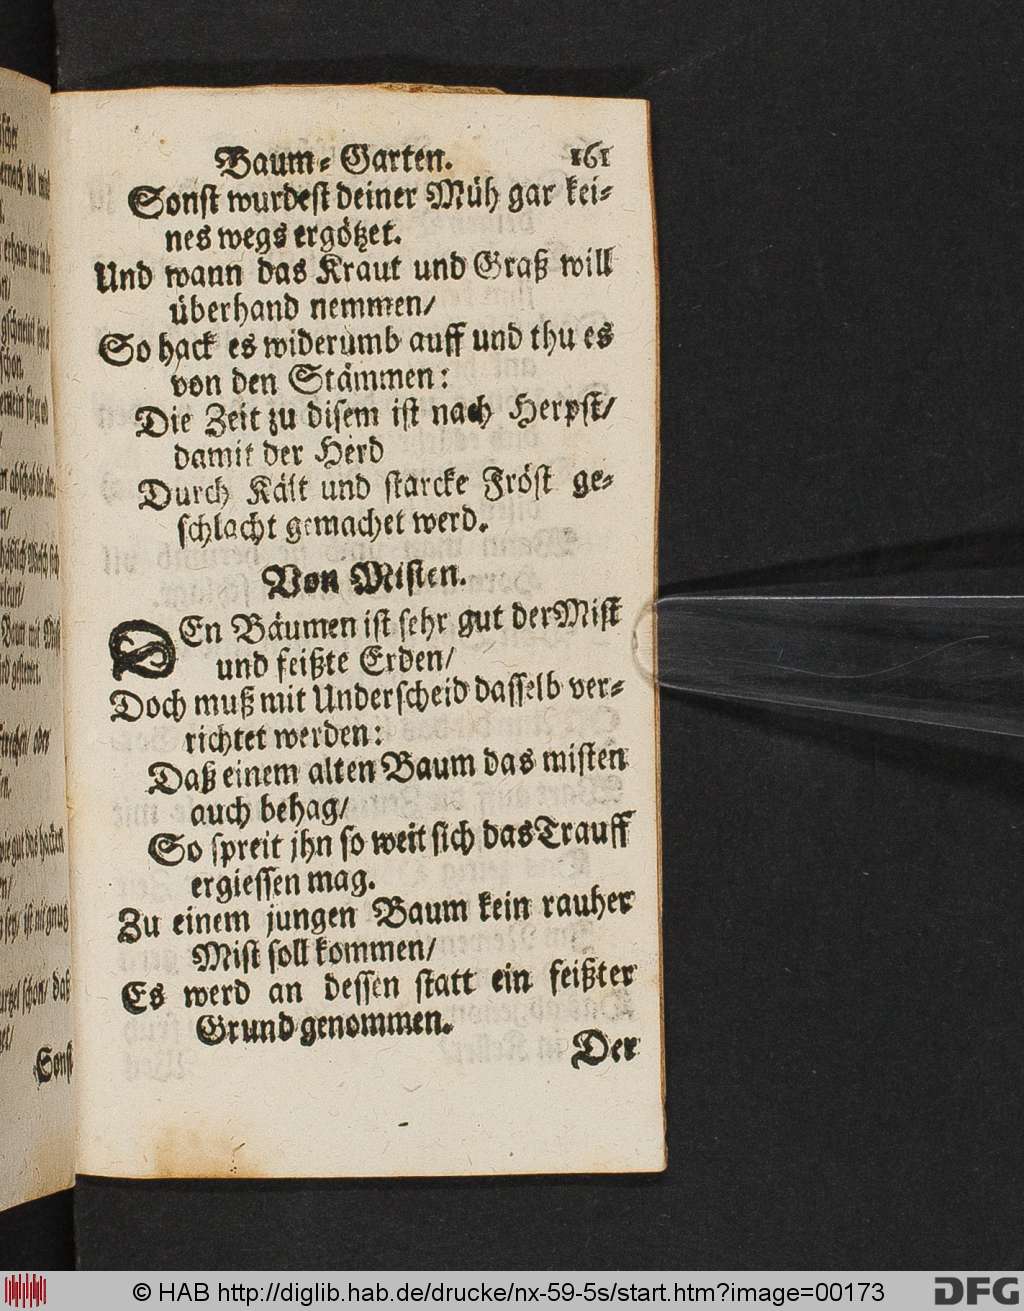 Baum-Garten. 161
Sonst wurdest deiner Müh gar kei-
nes wegs ergötzet.
Und wann das Kraut und Graß will
überhand nemmen/
So hack es widerumb auff und thu es
von den Stämmen:
Die Zeit zu disem ist nach Herpst/
damit der Herd
Durch Kält und starcke Fröst ge-
schlacht gemachet werd.
Von Misten.
DEn Bäumen ist sehr gut der Mist
und feißte Erden/
Doch muß mit Underscheid dasselb ver-
richtet werden:
Daß einem alten Baum das misten
auch behag/
So spreit jhn so weit sich das Trauff
ergiessen mag.
Zu einem jungen Baum kein rauher
Mist soll kommen/
Es werd an dessen statt ein feißter
Grund genommen.
Der
Sonst
© HAB http://diglib.hab.de/drucke/nx-59-5s/start.htm?image=00173
DFG